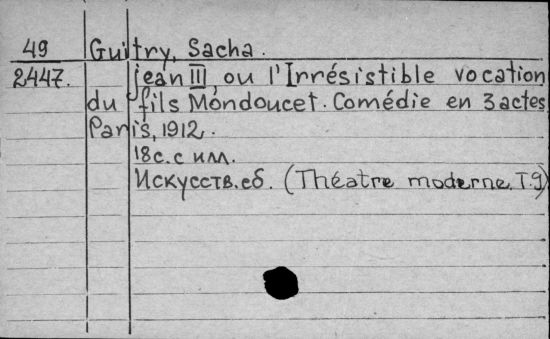 49 Guitry, Sacha.
2447. Jean III, ou l'Irrésistible vocation
du fils Mondoucet. Comédie en 3 actes
Paris, 1912.
18 с. с илл.
Искусств. сб. (Théatre moderne, T.9)